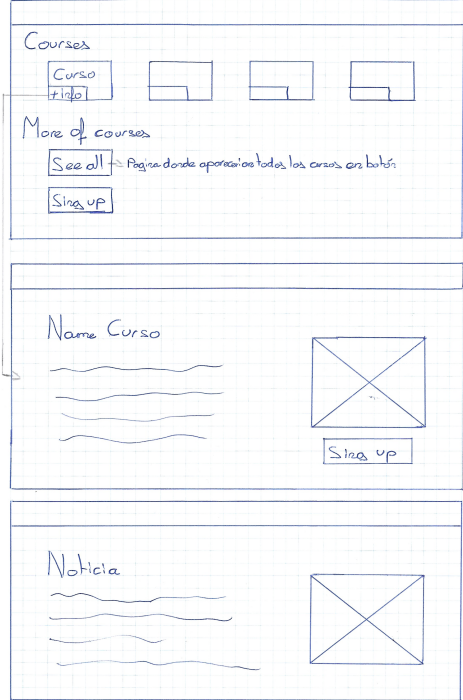 Courses
Curso
+info
More of courses
See all
Pagina donde aparecerian todos los cursos en botón
Sing up
Name Curso
Sing up
Noticia